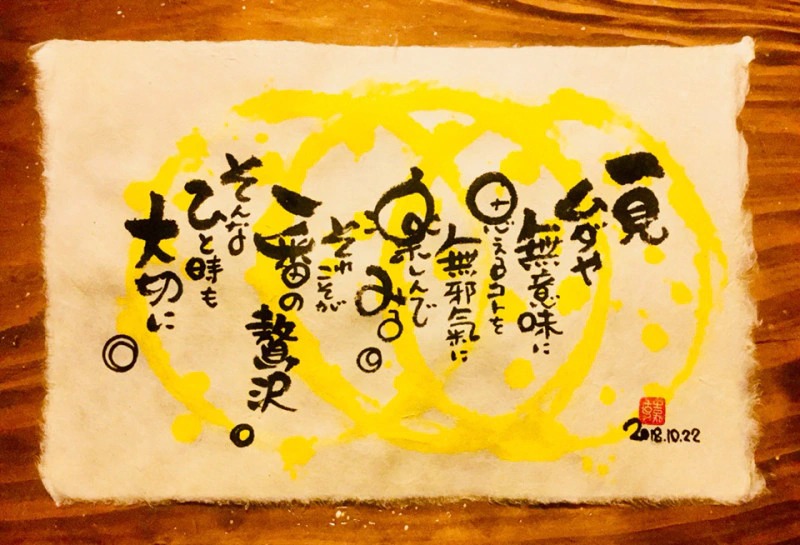 一見
ムダや
無意味に
思えるコトを
無邪気に
楽しんで
みる。
それこそが
一番の
贅沢。
そんな
ひと時も
大切に。
2018.10.22